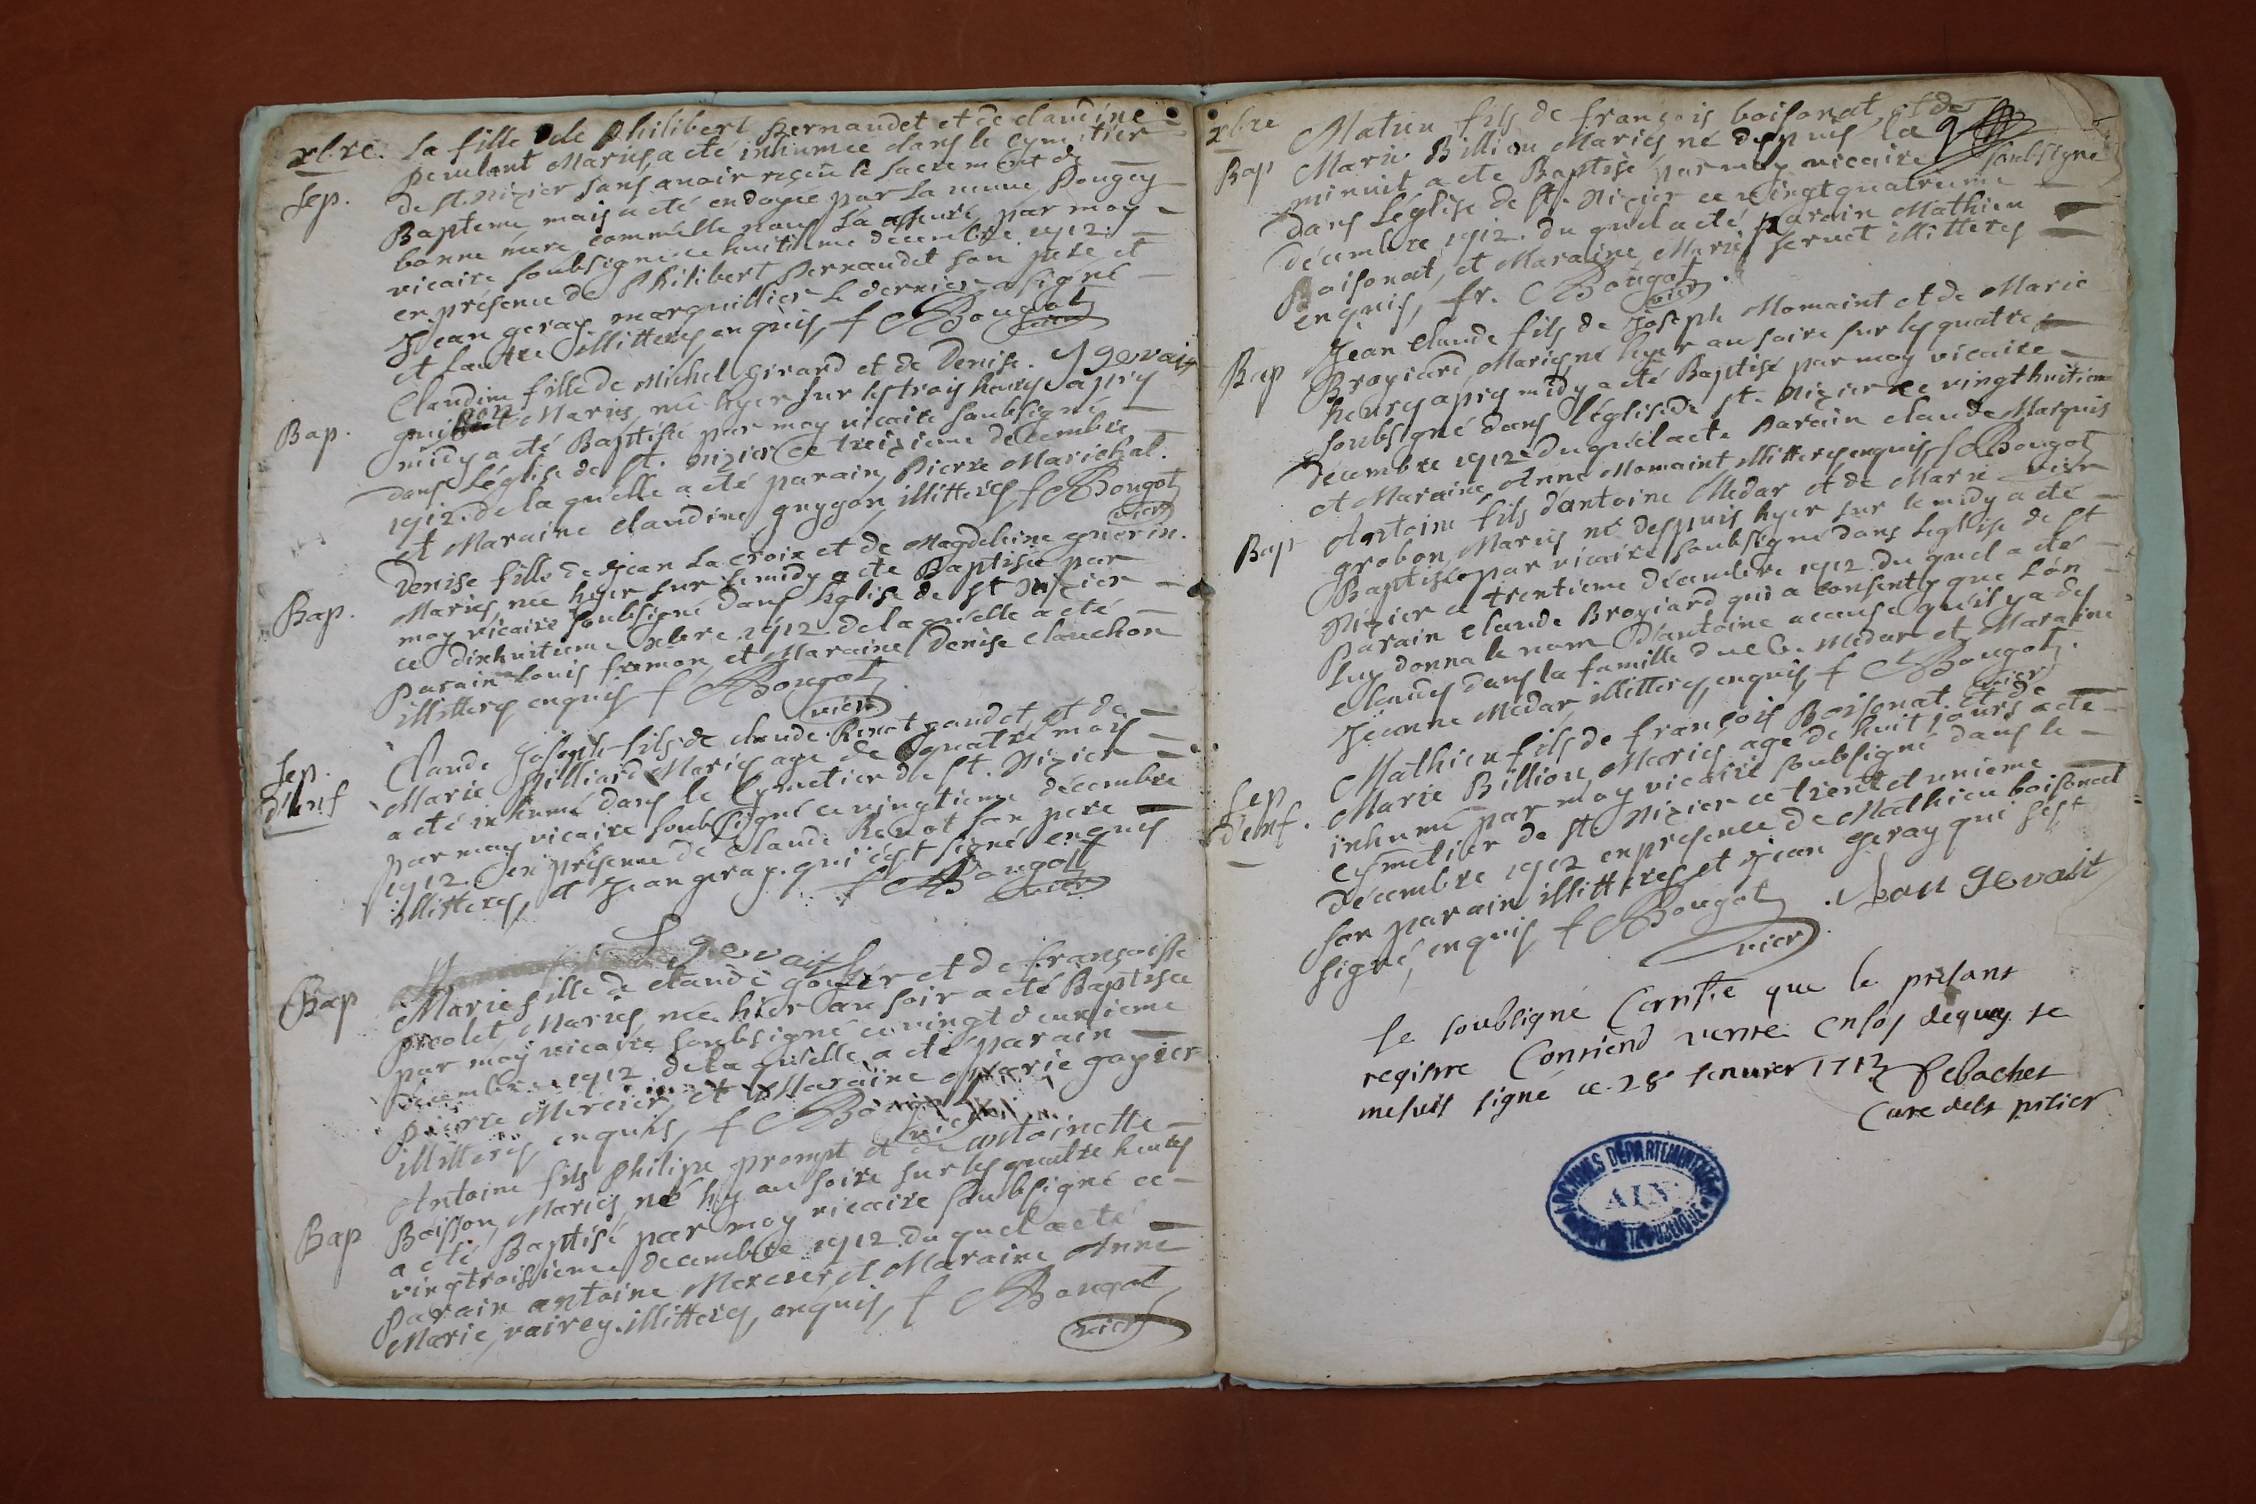 xbre. La fille de Philibert Pernaudet et de claudine
Sep. perulant Mariés, a eté inhumée dans le Cymetier
de St. Nizier sans avoir reçeu le sacrement de
Bapteme mais a eté endoyée par La veuve Pougey
bonne mere comm'elle nous la asseuré par moy
vicaire soubsigné ce huitieme decembre 1712.
en présence de Philibert Pernaudet son pere et
Jean geray marguillier le dernier a signé
et L'autre illitteres enquis, f Bougot vicr
J gevais
Claudine fille de Michel Girard et de Denise
Bap. Mariés née hyer sur les trois heures apres
midy a eté Baptisée par moy vicaire soubsigné
dans L'église de St. Nizier ce treizieme decembre
1712. de la quelle a eté parain Pierre Marichal.
et Maraine claudine guygon illitteres f Bougot
vicr
Denise fille de Jean La croix et de Magdeleine guerin.
Bap. Mariés née hyer sur le midy a eté Baptisée par
moy vicaire soubsigné dans l'eglise de St Nizier
ce dixhuitieme xbre 1712. de la quelle a eté
parain Louis fromon et Maraine Denise clauchon
illitteres enquis f Bougot
vicr
Sep. Claude Joseph fils de claude Renot gaudet et de
d'enf Marie Milliard Mariés age de quatre mois
a eté inhumé dans le Cymetier de St. Nizier
par moy vicaire soubsigné ce vingtieme décembre
1712. en présence de Claude Renot son pere
illitteres, et Jean geray. qui s'est signé enquis
f Bougot
vicr
J gevais
Bap Marie fille de claude goyer et de françoisse
preolet, Mariés née hier au soir a eté Baptisée
par moy vicaire soubsigné ce vingt deuxieme
decembre 1712 de la quelle a eté parain
pierre Mercier et Maraine Marie goyier
illitteres, enquis, f Bougot
vicr
Antoine fils Philipe prompt et de antoinette
Bap Boisson, Mariés, né hyer au soire sur les quatre heures
a eté Baptisé par moy vicaire soubsigné ce
vingtroisieme decembre 1712 du quel a eté
Parain antoine Mercier, et Maraine Anne
Marie vairey. illitteres, enquis, f Bougot
vicr
xbre Matieu fils de françois boisonat, et de
Bap Marie Billion Mariés né despuis la
minuit a eté Baptisé par moy vicaire soubsigné
dans L'église de St. Nizier ce vingtquatrieme
décembre 1712. du quel a eté parain Mathieu
Boisonat, et Maraine Marie servet illitteres
enquis, fr. Bougot.
vicr
Jean claude fils de Joseph Momaint et de Marie
Bap Broyiard, Mariés né hyer au soire sur les quatre
heures apres midy a eté Baptisé par moy vicaire
soubsigné dans l'église de St. Nizier ce vingthuitieme
decembre 1712. du quel a eté Parain claude Marquis
et Maraine Anne Momaint illitteres enquis f Bougot
vicr
Antoine fils d'antoine Medar et de Marie
Bap grobon Mariés né despuis hyer sur le midy a eté
Baptisé par vicaire soubsigné dans l'eglise de St
Nizier ce trentieme décembre 1712. du quel a eté
Parain claude Broyiard qui a consenty que L'on
luy donna le nom d'antoine a cause qu'il y a des
claudes dans la famille dud. Medar et Maraine
Jeanne Medar illitteres, enquis, f Bougot.
vicr
Mathieu fils de françois Boisonat et de
Sep Marie Billion Mariés age de huit jours a eté
d'enf. inhumé par moy vicaire soubsigné dans le
cymetier de St Nizier ce trente et unieme
décembre 1712 en presence de Mathieu boisonat
son parain illitteres, et Jean geray qui s'est
signé, enquis f Bougot . Jean gevait
vicr
Je soubsigné Certifie que le presant
registre Contiend de quoy je
me suis signé ce 28 Janvier 1713
Curé de St nizier
ARCHIVES DÉPARTEMENTALES
AIN
PROPRIÉTÉ PUBLIQUE